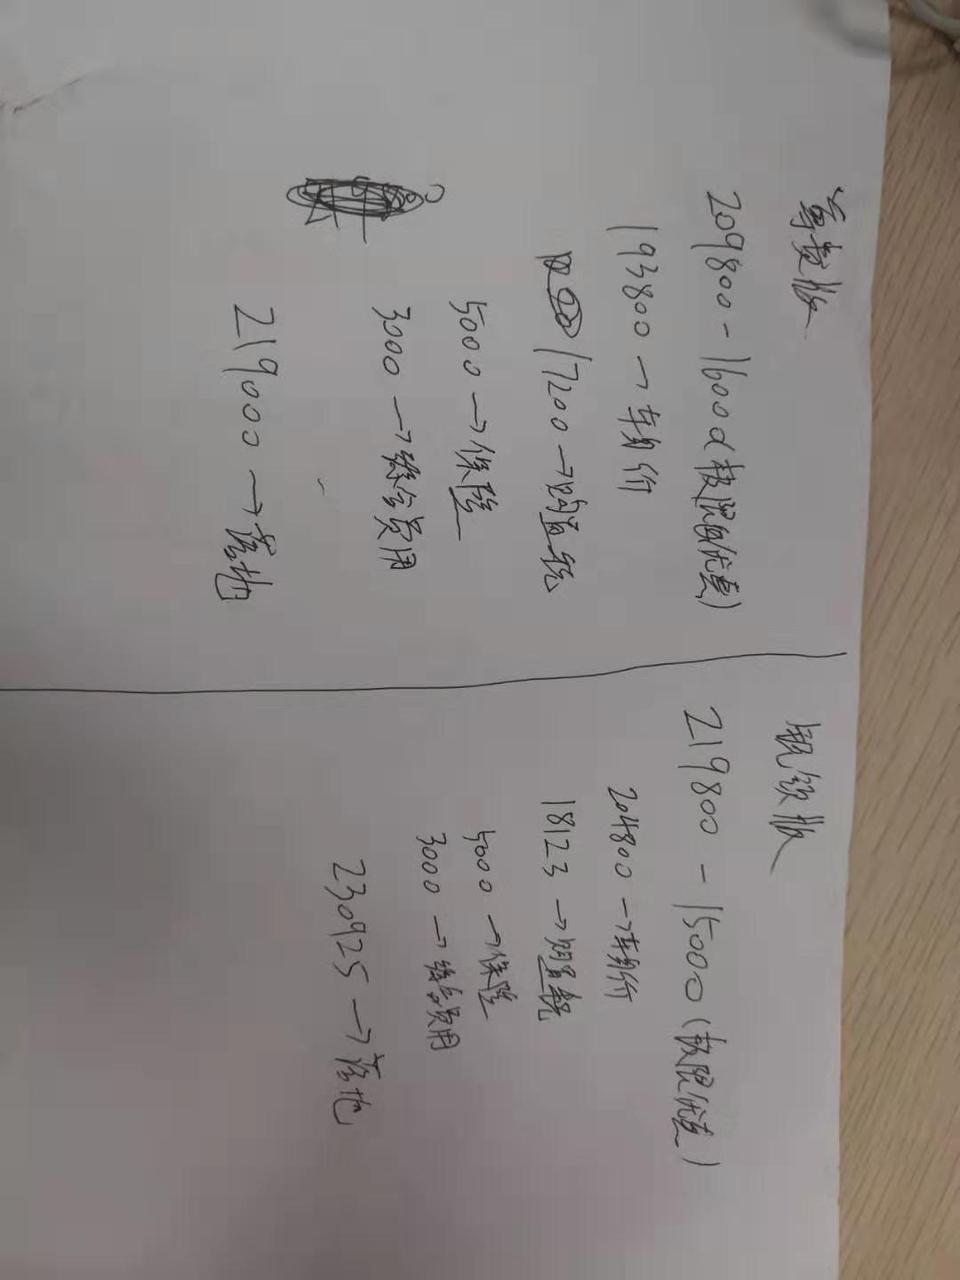 尊贵版
209800-16000(极限优惠)
193800→车身价
17200→购置税
5000→保险
3000→综合费用
219000→落地
旗舰版
219800-15000(极限优惠)
204800→车身价
18123→购置税
5000→保险
3000→综合费用
230925→落地